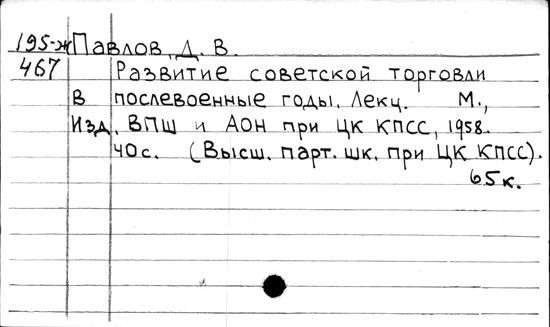 195-ж Павлов, Д. В.
467 Развитие советской торговли
в послевоенные годы. Лекц. М.,
Изд. ВПШ и АОН при ЦК КПСС, 1958.
40с. (Высш. парт. шк. при ЦК КПСС).
65к.